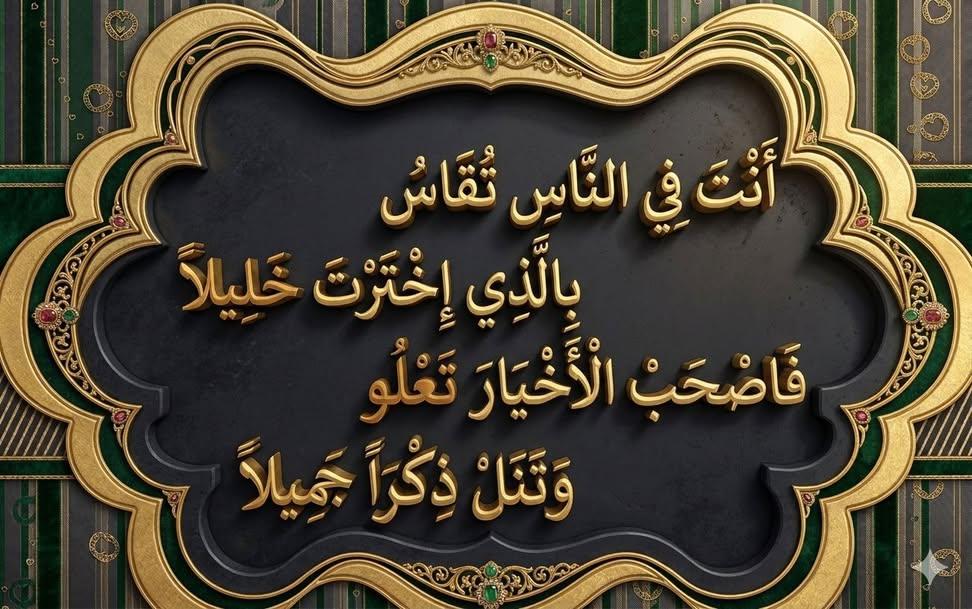 أَنْتَ فِي النَّاسِ تُقَاسُ
بِالَّذِي إِخْتَرْتَ خَلِيلاً
فَاصْحَبْ الْأَخْيَارَ تَعْلُو
وَتَنَلْ ذِكْرَاً جَمِيلاً